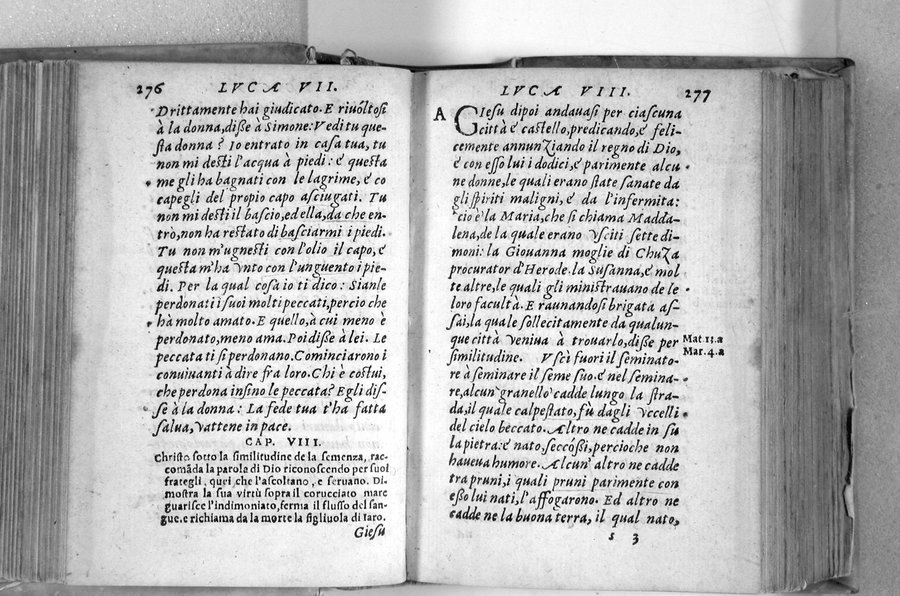 276
LVCA VII.
Drittamente hai giudicato. E rivóltosi
à la donna, disse à Simone: Vedi tu que-
sta donna? Io entrato in casa tua, tu
non mi desti l'acqua à piedi: é questa
me gli ha bagnati con le lagrime, é co
capegli del propio capo asciugati. Tu
non mi desti il bascio, ed ella, da che en-
trò, non ha restato di basciarmi i piedi.
Tu non m'ugnesti con l'olio il capo, é
questa m'ha vnto con l'unguento i pie-
di. Per la qual cosa io ti dico: Sianle
perdonati i suoi molti peccati, percio che
hà molto amato. E quello, à cui meno è
perdonato, meno ama. Poi disse à lei. Le
peccata ti si perdonano. Cominciarono i
conuiuanti à dire fra loro. Chi è costui,
che perdona insino le peccata? Egli dis-
se à la donna: La fede tua t'ha fatta
salua, vattene in pace.
CAP. VIII.
Christo sotto la similitudine de la semenza, rac-
comāda la parola di Dio riconoscendo per suoi
frategli, quei, che l'ascoltano, e seruano. Di
mostra la sua virtù sopra il corucciato mare
guarisce l'indimoniato, ferma il flusso del san-
gue. e richiama da la morte la figliuola di Iaro.
Giesu
LVCA VIII.
277
A
GIesu dipoi andauasi per ciascuna
città é castello, predicando, é feli-
cemente annunziando il regno di Dio,
é con esso lui i dodici, é parimente alcu
ne donne, le quali erano state sanate da
gli spiriti maligni, é da l'infermita:
cio è la Maria, che si chiama Madda-
lena, de la quale erano vsciti sette di-
moni: la Giouanna moglie di Chuza
procurator d'Herode. la Susanna, é mol
te altre, le quali gli ministrauano de le
loro facultà. E raunandosi brigata as-
sai, la quale sollecitamente da qualun-
que città veniua à trouarlo, disse per
similitudine. Vscì fuori il seminato-
re à seminare il seme suo. é nel semina-
re, alcun' granello cadde lungo la stra-
da, il quale calpestato, fù dagli vccelli
del cielo beccato. Altro ne cadde in su
la pietra: é nato, seccóssi, percioche non
haueua humore. Alcun' altro ne cadde
tra pruni, i quali pruni parimente con
esso lui nati, l'affogarono. Ed altro ne
cadde ne la buona terra, il qual nato,
s 3
Mat 13.a
Mar. 4.a